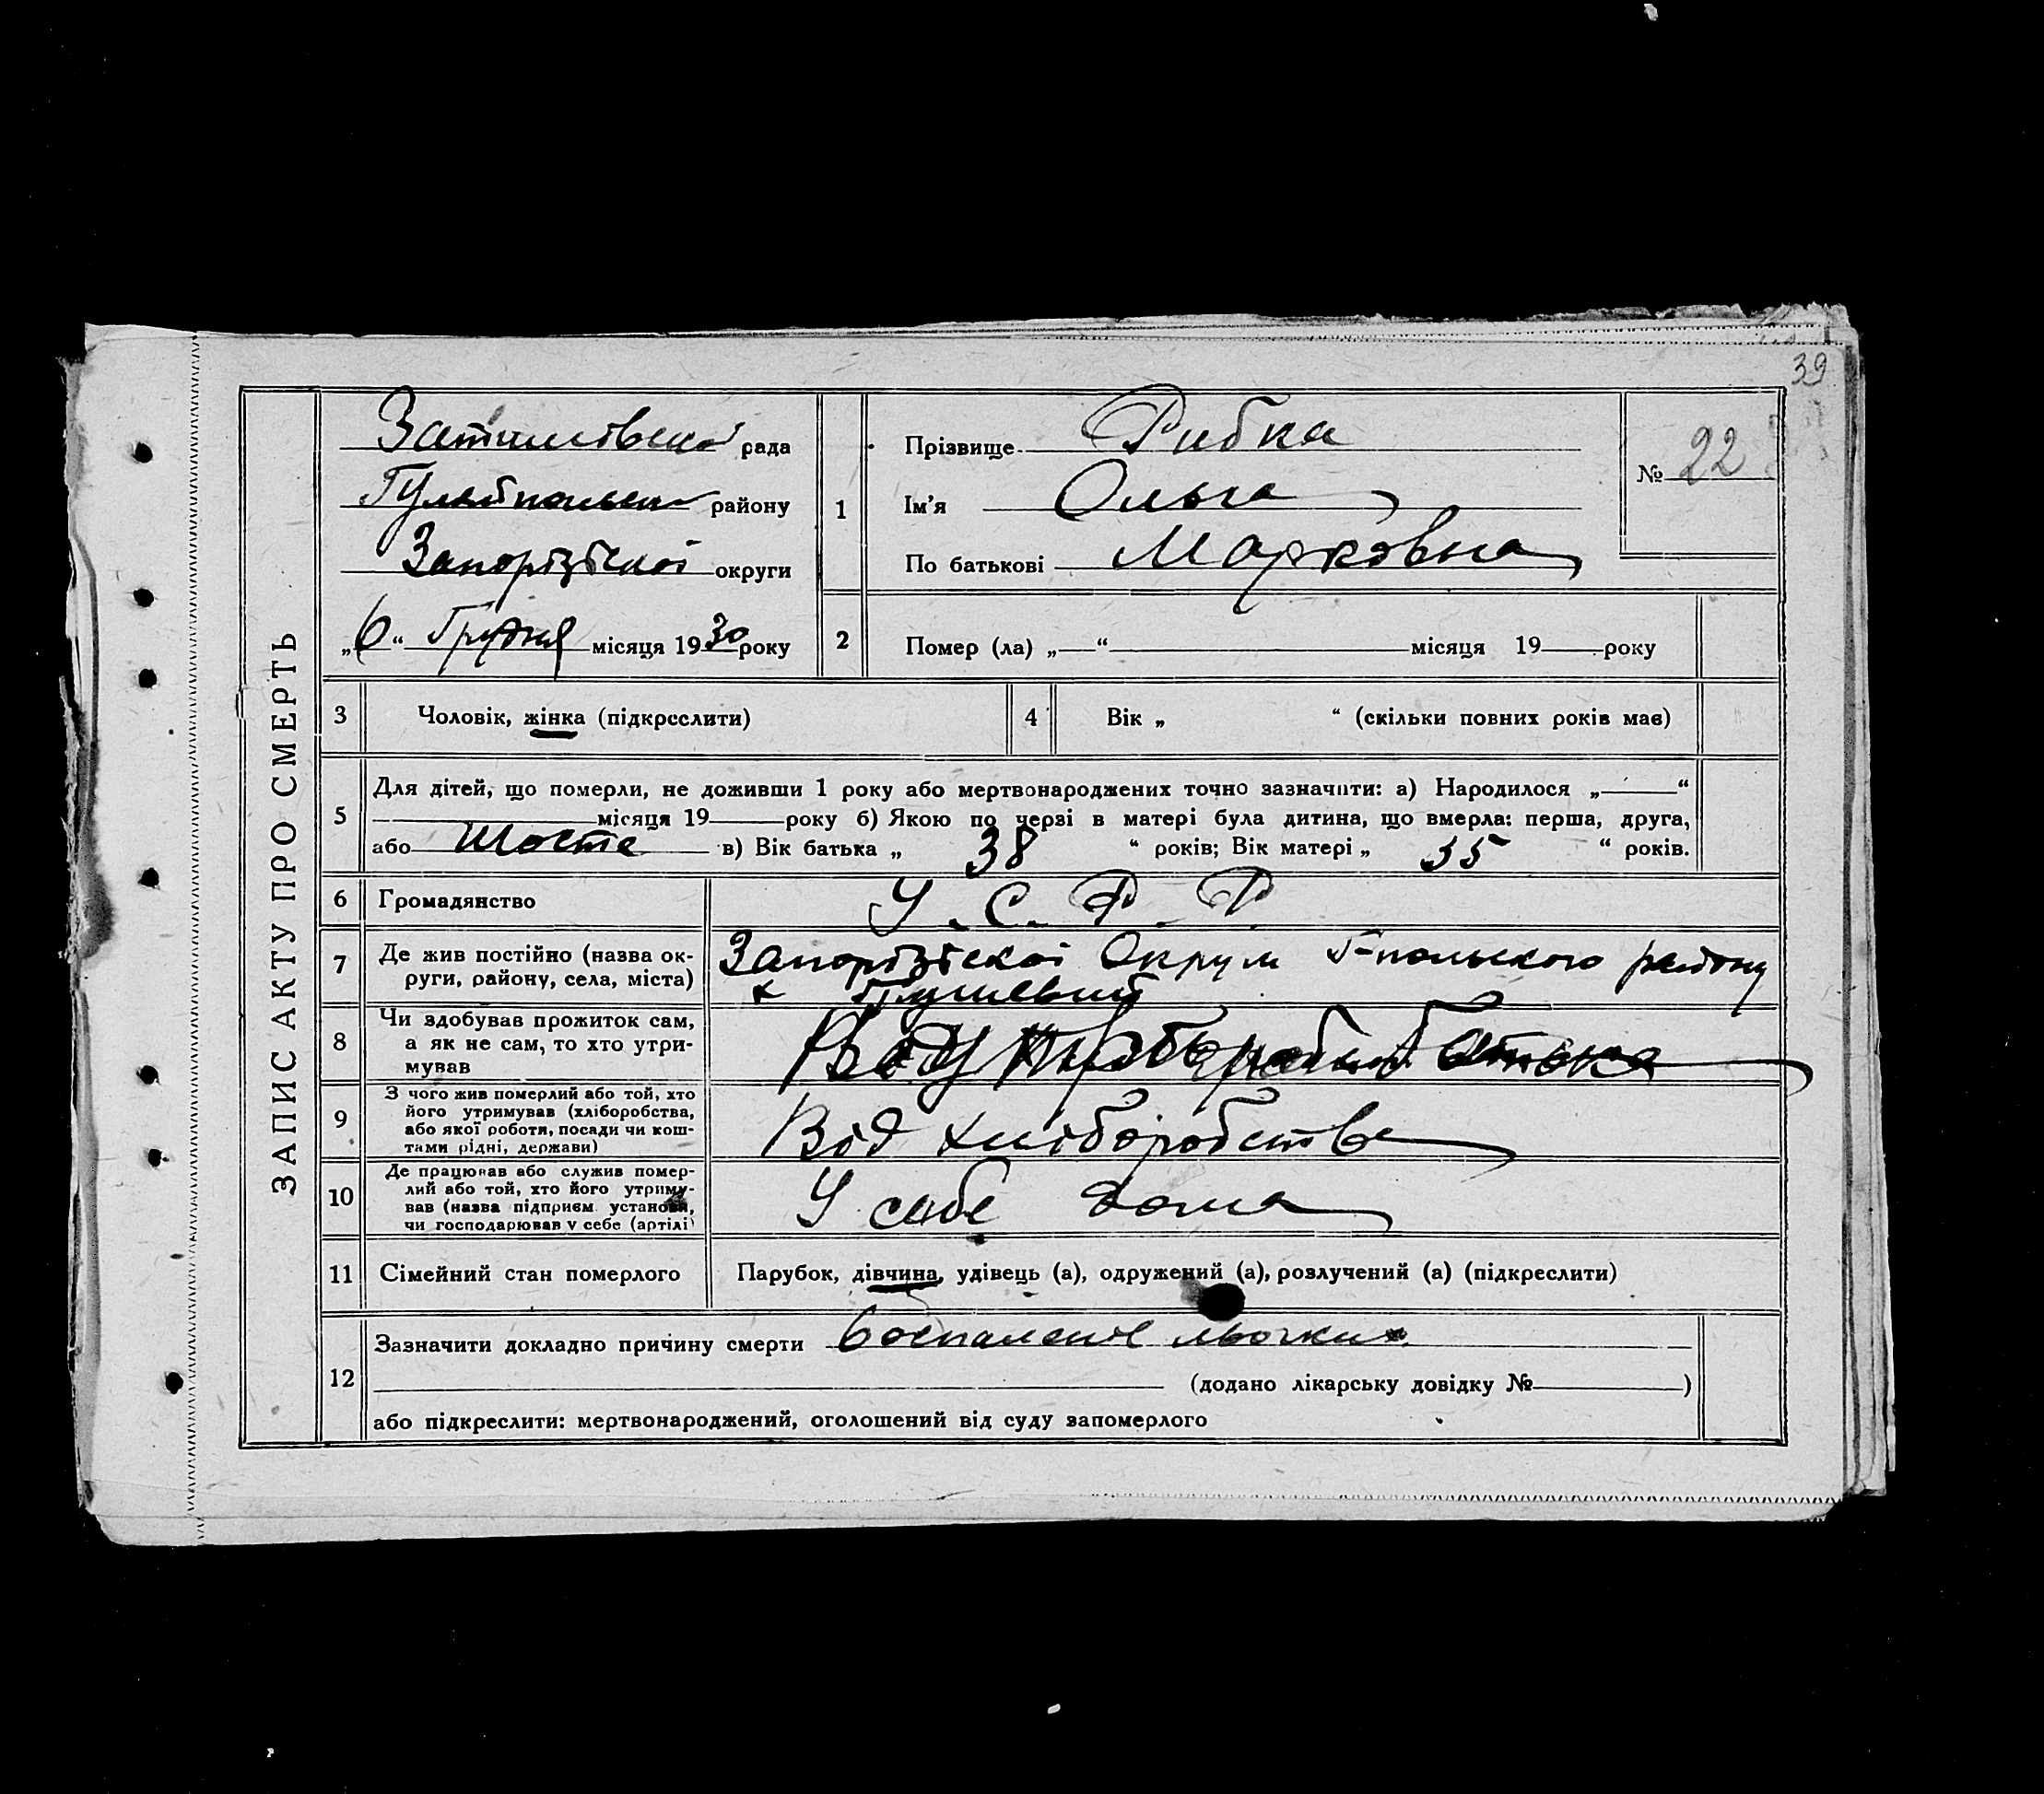 39
ЗАПИС АКТУ ПРО СМЕРТЬ
рада
району
Запорізської округи
„6“ Грудня місяця 1930 року
1
Прізвище Рибка
Ім'я Ольга
По батькові Марковна
№ 22
2 Помер (ла) „ “ місяця 19 року
3 Чоловік, жінка (підкреслити)
4 Вік „ “ (скільки повних років має)
5 Для дітей, що померли, не доживши 1 року або мертвонароджених точно зазначити: а) Народилося „ “
місяця 19 року б) Якою по черзі в матері була дитина, що вмерла: перша, друга,
або шосте в) Вік батька „ 38 “ років; Вік матері „ 35 “ років.
6 Громадянство У.С.Р.Р.
7 Де жив постійно (назва округи, району, села, міста) Запорізської Округи Г-польского району
х
8 Чи здобував прожиток сам, а як не сам, то хто утримував Батька
9 З чого жив померлий або той, хто його утримував (хліборобства, або якої роботи, посади чи коштами рідні, держави) Від хліборобства
10 Де працював або служив померлий або той, хто його утримував (назва підприєм. установи, чи господарював у себе (артілі) У себе дома
11 Сімейний стан померлого Парубок, дівчина, удівець (а), одружений (а), розлучений (а) (підкреслити)
12 Зазначити докладно причину смерти воспаленіє льогких
(додано лікарську довідку № )
або підкреслити: мертвонароджений, оголошений від суду запомерлого